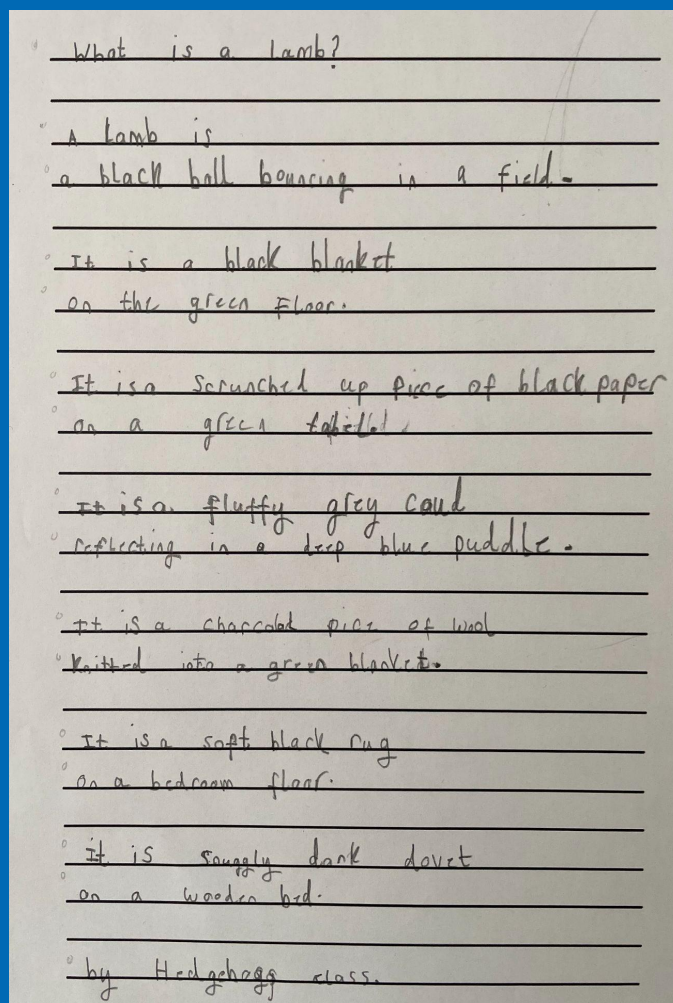 What is a lamb?
A Lamb is
a black ball bouncing in a field.
It is a black blanket
on the green Floor.
It is a Scrunched up piece of black paper
on a green
It is a fluffy grey coud
reflecting in a deep blue puddle.
It is a charcolat pice of wool
Knitted into a green blanket.
It is a soft black rug
on a bedroom floor.
It is snuggly dark dovet
on a wooden bed.
by Hedgehogg class.